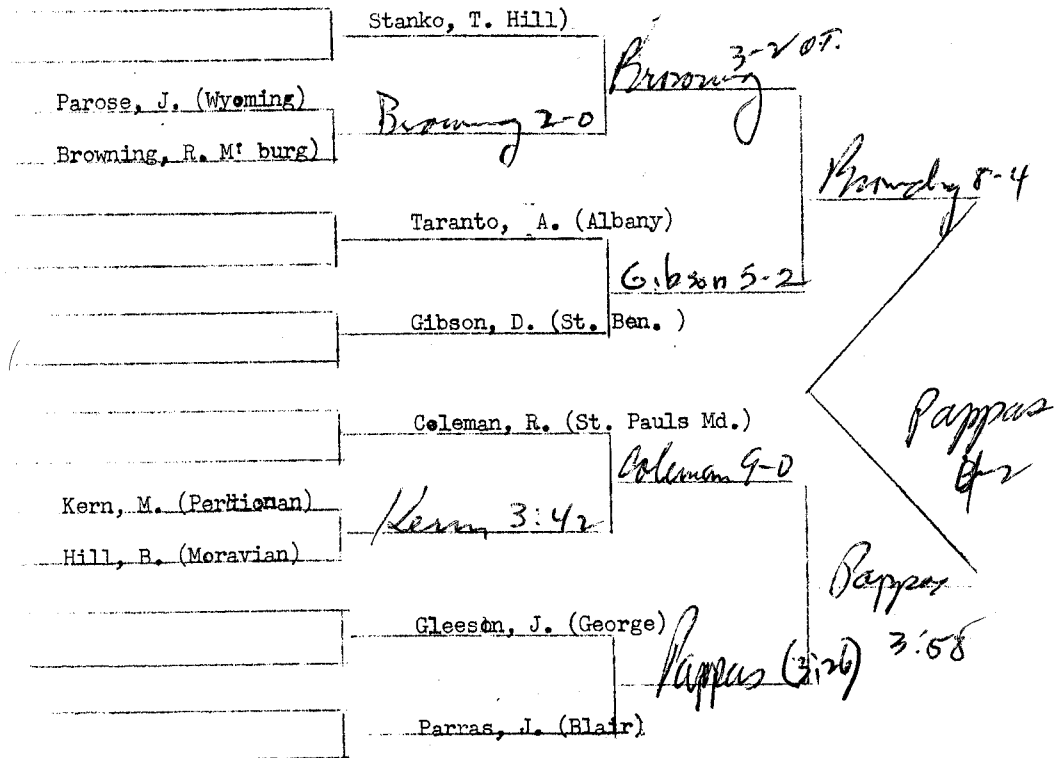 Stanko, T. Hill)
Browning 3-2 OT.
Parose, J. (Wyoming)
Browning 2-0
Browning, R. M' burg)
Browning 8-4
Taranto, A. (Albany)
Gibson 5-2
Gibson, D. (St. Ben. )
Coleman, R. (St. Pauls Md.)
Pappas
Coleman 9-0
Kern, M. (Perkionan)
Kern 3:42
Hill, B. (Moravian)
Pappas
3:58
Gleeson, J. (George)
Pappas (3:26)
Parras, J. (Blair)